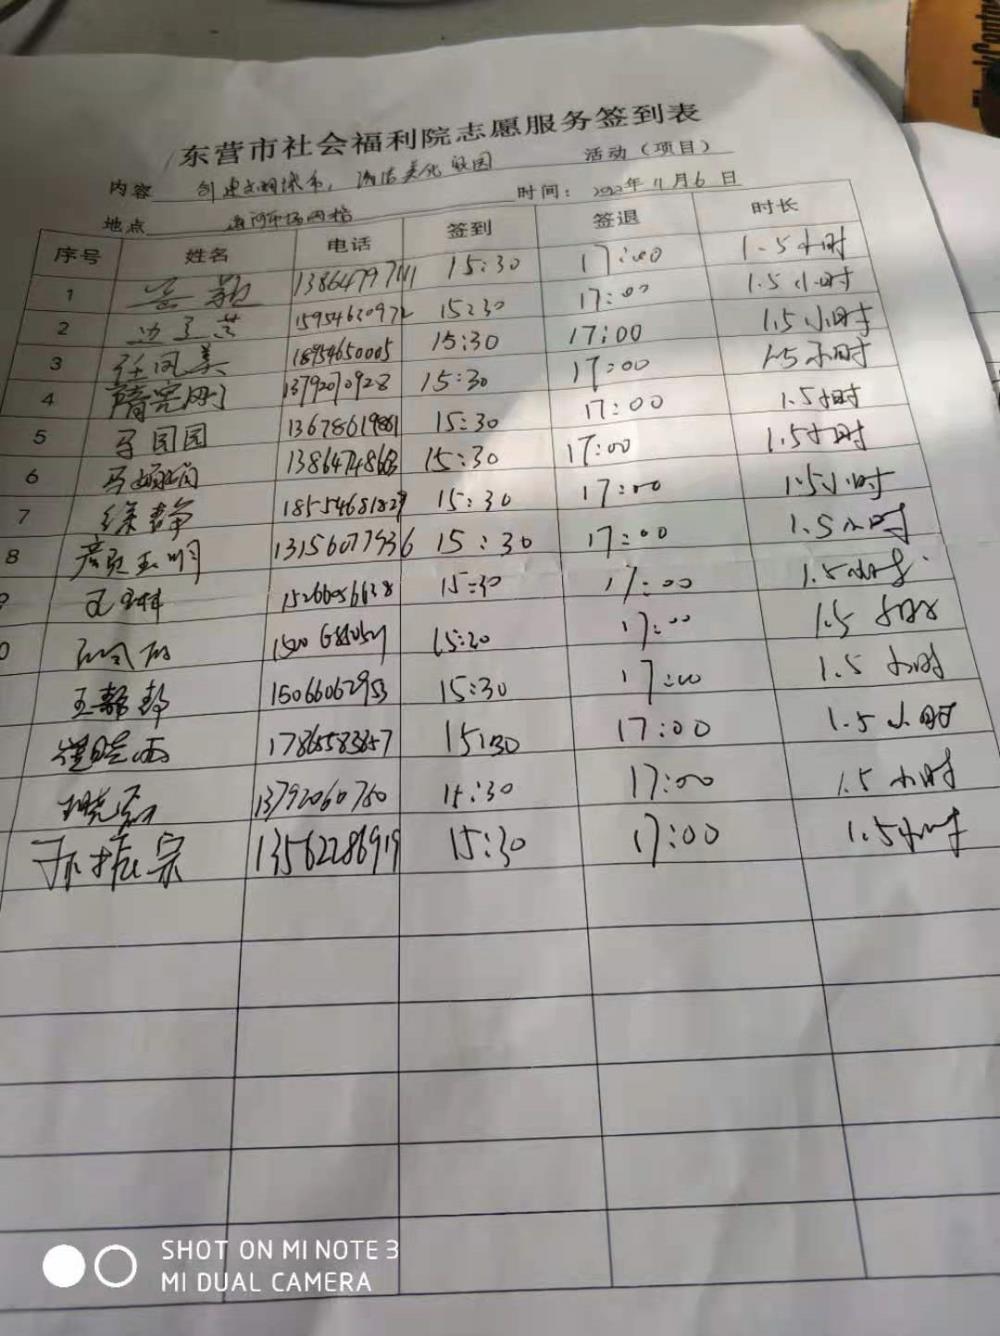 东营市社会福利院志愿服务签到表
内容 创建文明城市，清洁美化校园 活动（项目）
地点 时间：2020年11月6日
序号 姓名 电话 签到 签退 时长
1 13864797111 15:30 17:00 1.5小时
2 15954630972 15:30 17:00 1.5小时
3 任凤美 18954650005 15:30 17:00 1.5小时
4 13792070928 15:30 17:00 1.5小时
5 马园园 13678619881 15:30 17:00 1.5小时
6 马娟娟 15:30 17:00 1.5小时
7 徐静 18554681829 15:30 17:00 1.5小时
8 13156077536 15:30 17:00 1.5小时
15266056638 15:30 17:00 1.5小时
0 15:30 17:00 1.5小时
王静静 15066062953 15:30 17:00 1.5小时
崔晓雨 17865583857 15:30 17:00 1.5小时
13792060780 15:30 17:00 1.5小时
孙振宗 13562286919 15:30 17:00 1.5小时
SHOT ON MI NOTE 3
MI DUAL CAMERA